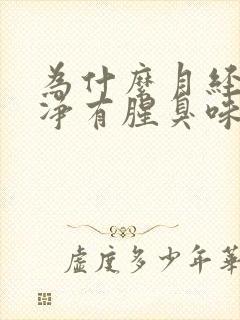 為什麼月經
淨有腥臭味
虛度多少年華